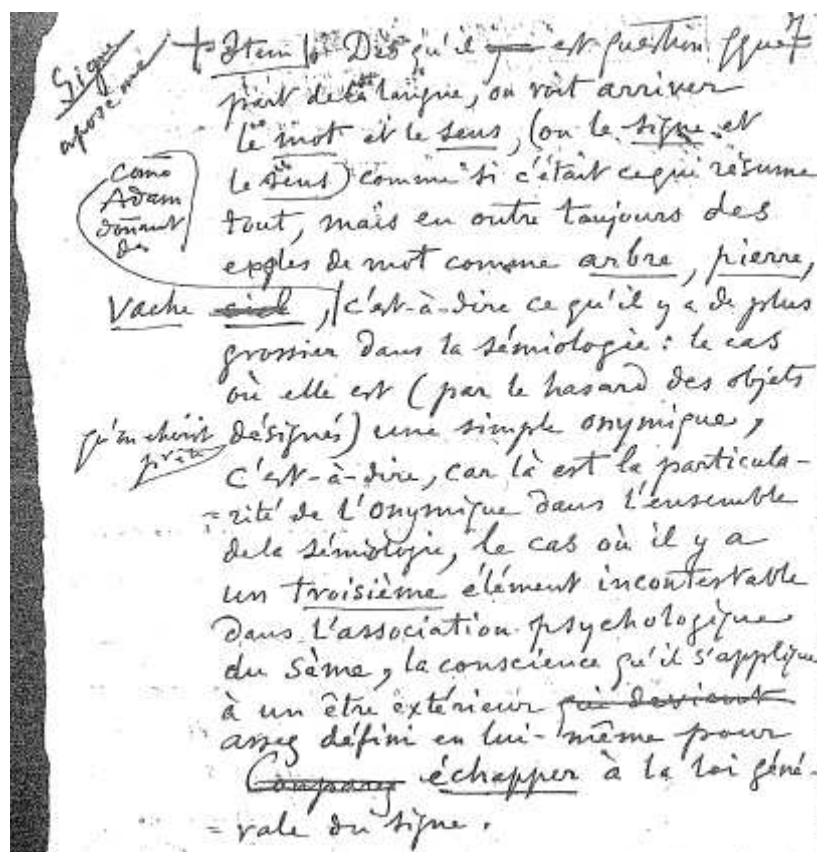 Signe
aposème
+ Item. Dès qu'il est question qque
part de la langue, on voit arriver
le mot et le sens, (ou le signe et
le sens) comme si c'était ce qui résume
tout, mais en outre toujours des
exples de mot comme arbre, pierre,
Vache ciel, c'est-à-dire ce qu'il y a de plus
Come
Adam
donnant
des
grossier dans la sémiologie : le cas
où elle est (par le hasard des objets
qu'on choisit
désignés) une simple onymique,
c'est-à-dire, car là est la particula-
=rité de l'onymique dans l'ensemble
de la sémiologie, le cas où il y a
un troisième élément incontestable
dans l'association psychologique
du sème, la conscience qu'il s'applique
à un être extérieur qui devient
assez défini en lui-même pour
Comparez échapper à la loi géné-
=rale du signe.